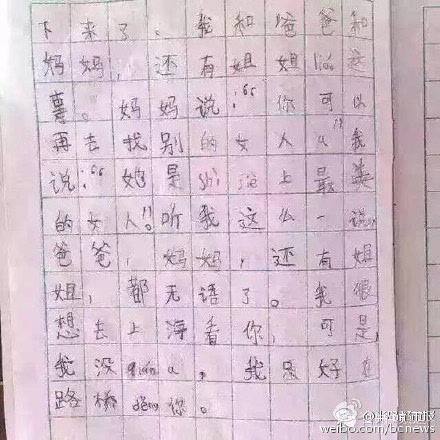 下来了。我和爸爸和
妈妈，还有姐姐liáo这
事。妈妈说：“你可以
再去找别的女人a”我
说：“她是shì jiè上最美
的女人”。听我这么一说，
爸爸，妈妈，还有姐
姐，都无语了。我很
想去上海看你，可是
我没qián a，我只好在
路桥děng你。
weibo.com/bcnews